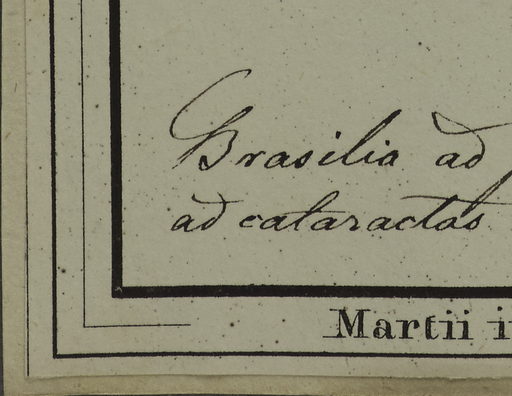 Brasilia ad
ad cataractas
Martii i